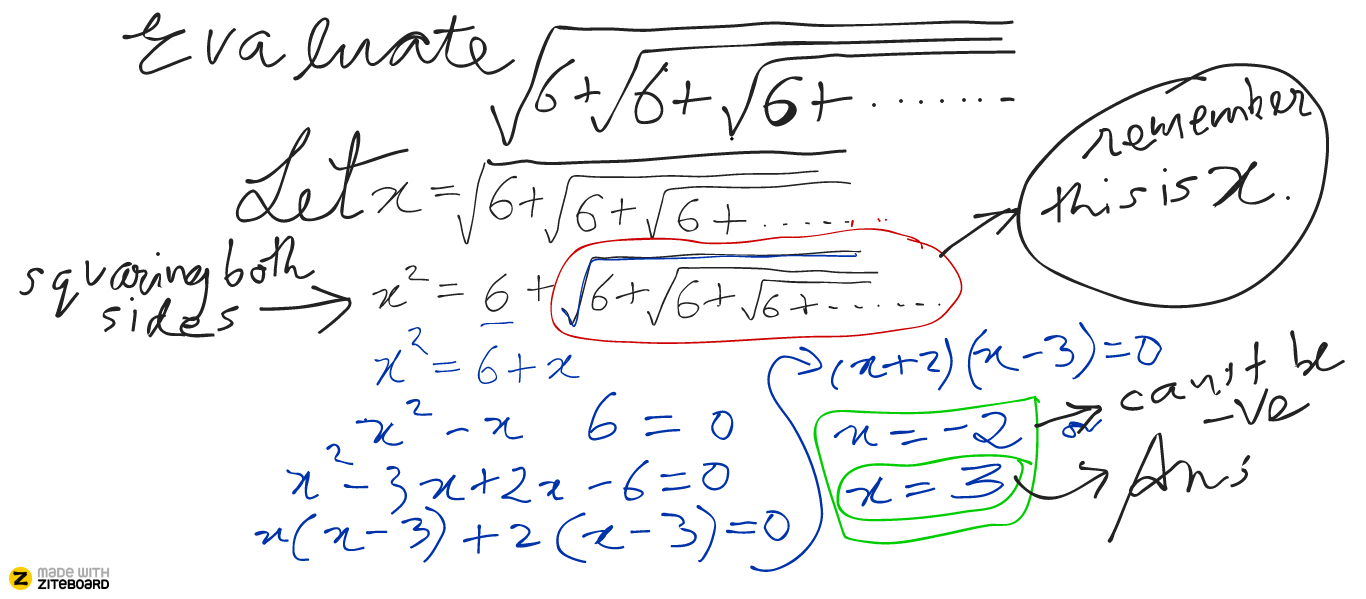 Evaluate √(6+√(6+√(6+.......
Let x = √(6+√(6+√(6+.......
remember
this is x.
squaring both
sides
x² = 6 + √(6+√(6+√(6+.......
x² = 6 + x
x² - x 6 = 0
x² - 3x + 2x - 6 = 0
x(x-3) + 2(x-3) = 0
(x+2)(x-3) = 0
x = -2 or
can't be
-ve
x = 3
Ans
MADE WITH
ZITEBOARD